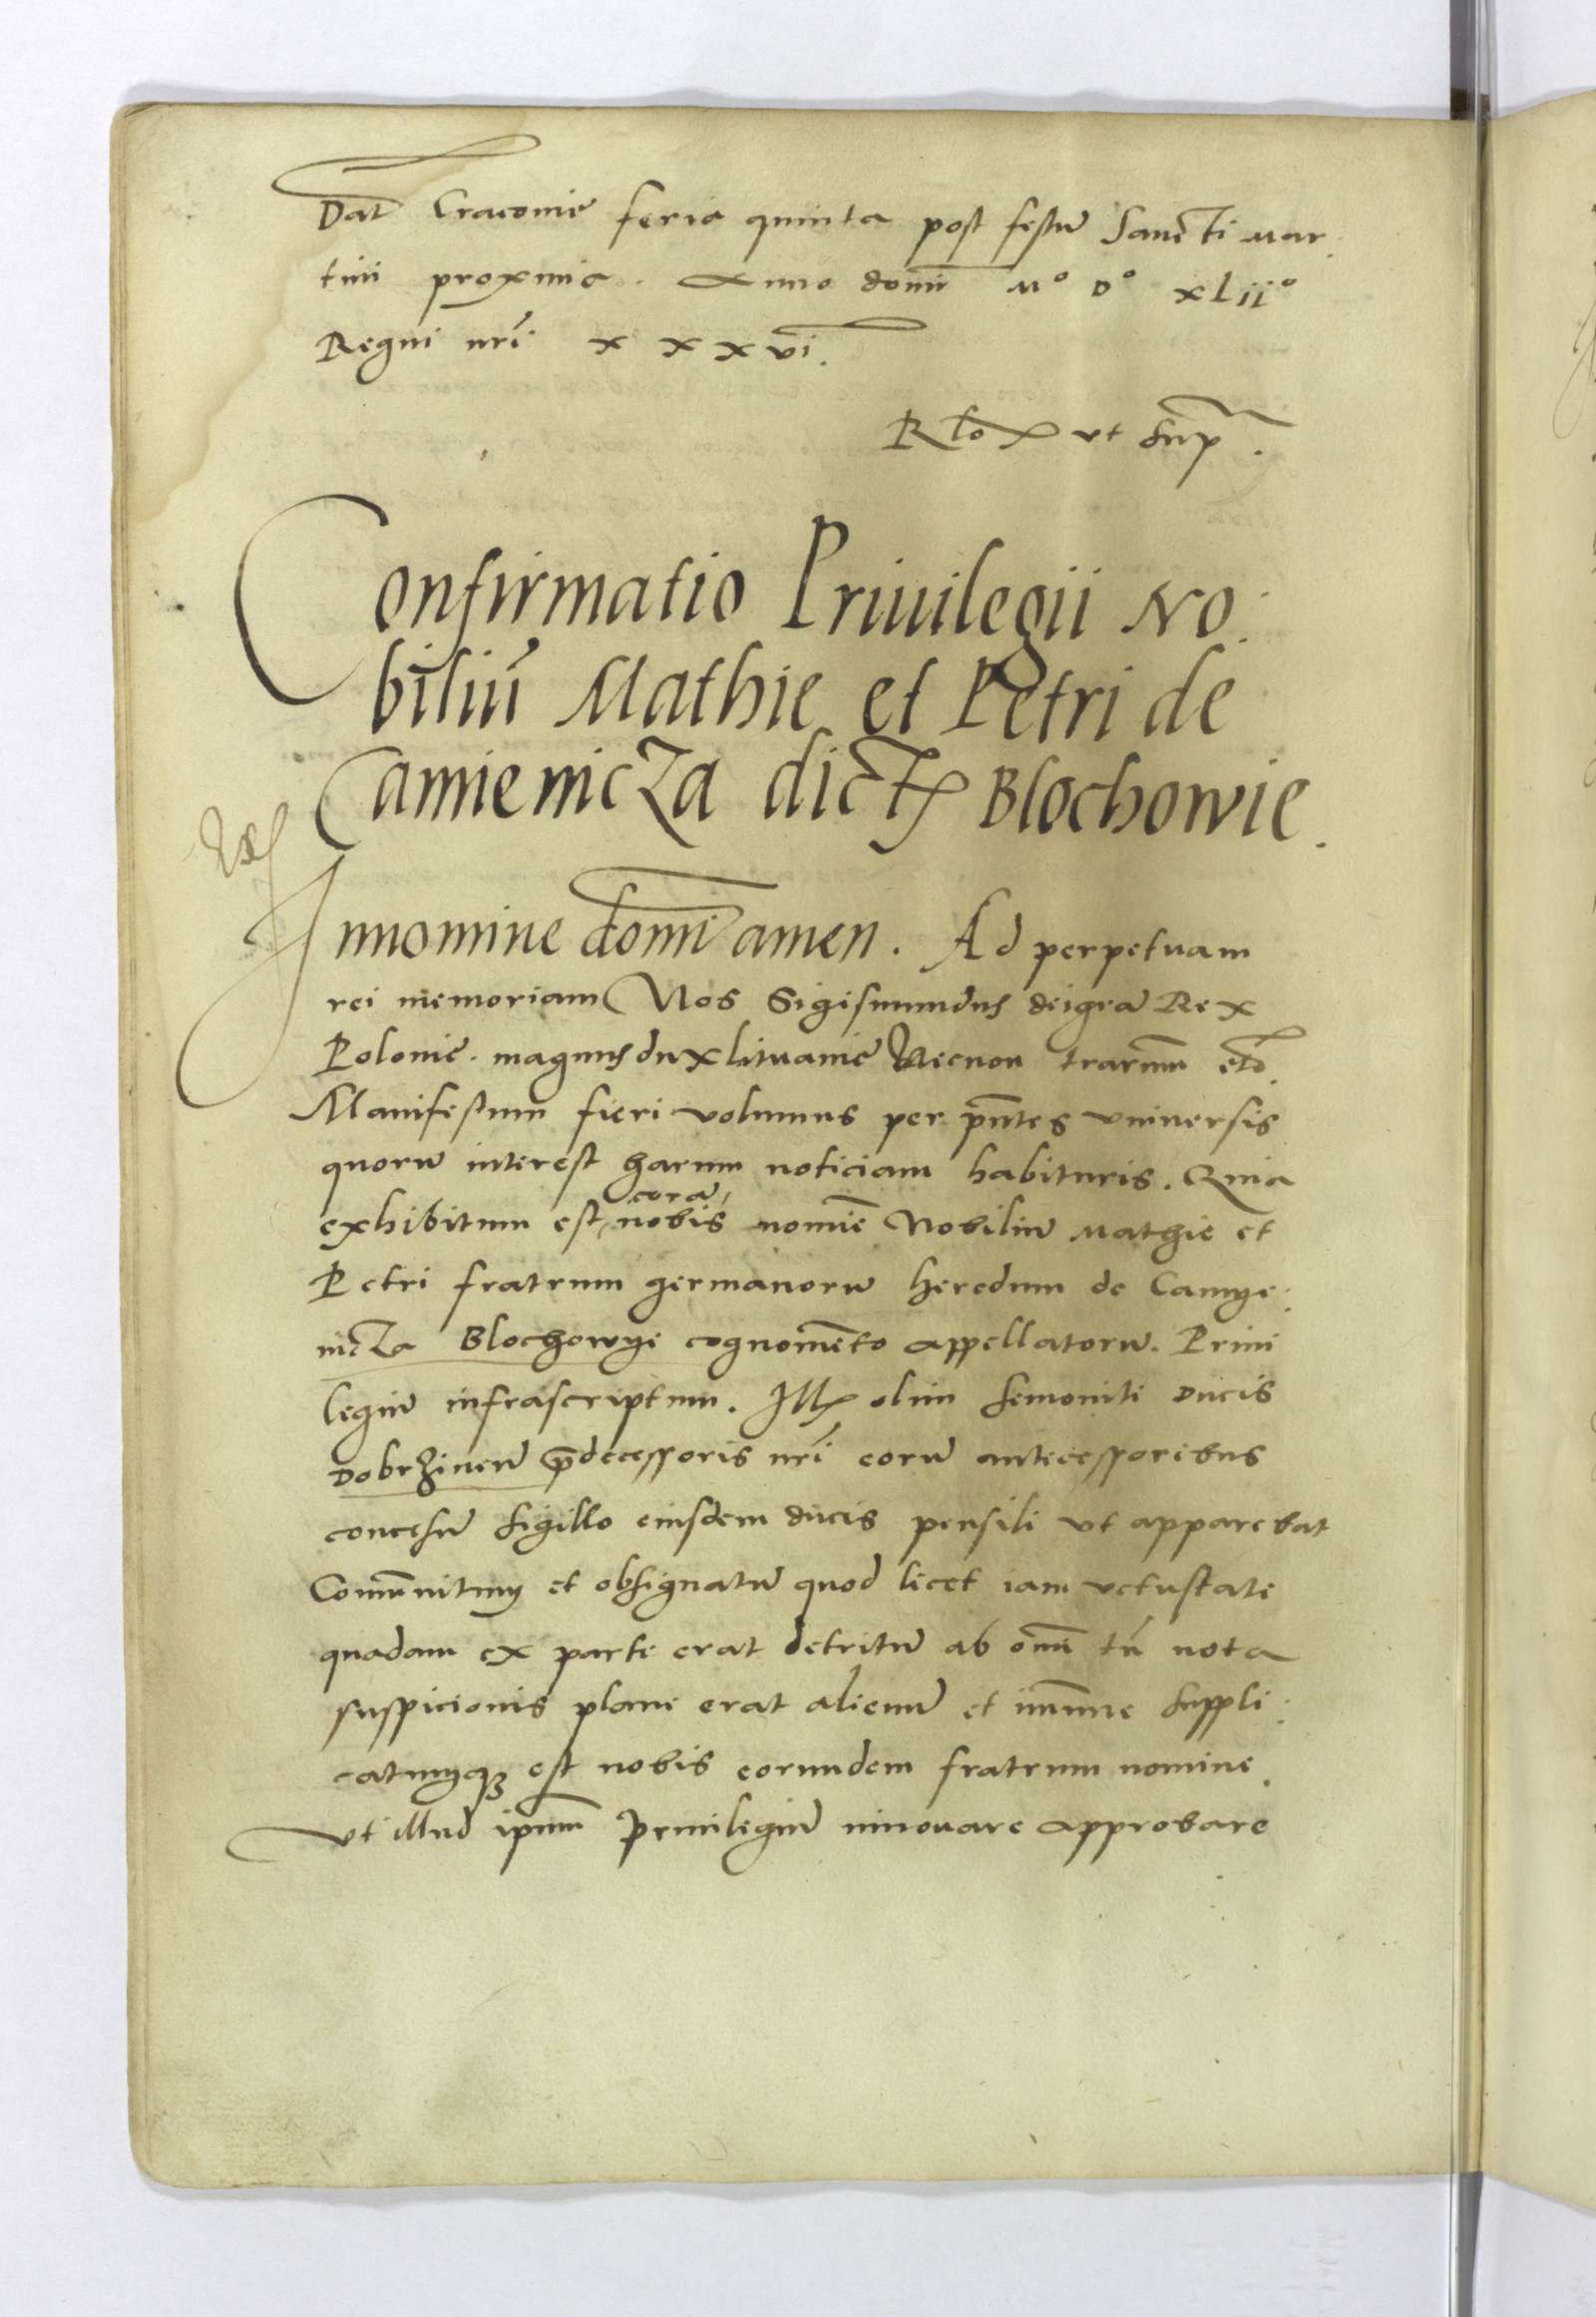 Dat Cracovie feria quinta post festu Sancti Mar
tini proxima. Anno domi Mº Dº XLIIº
Regni nri xxxvi.
Rlo ut sup.
Confirmatio Priuilegii No
biliu Mathie et Petri de
Camienicza dict Blochowie.
Innomine domi amen. Ad perpetuam
rei memoriam Nos Sigismundus deigra Rex
Polonie. magnus dux lituanie Necnon trarum etc.
Manifestum fieri volumus per pntes vniuersis
quoru interest harum noticiam habituris. Quia
exhibitum est corã nobis nomie Nobiliu Mathie et
Petri fratrum germanoru heredum de Camye
nicza Blochowye cognometo appellatoru. Priui
legiu infrascriptum. Ill olim Semoniti Ducis
Dobrzinen prdecessoris nri eoru antecessoribus
concesu sigillo eiusdem ducis pensili ut apparebat
Comunitum et obsignatu quod licet iam vetustate
quadam ex parte erat detritu ab omi tn nota
suspicionis plane erat alienu et imune suppli
catumq3 est nobis eorundem fratrum nomine
vt illud ipsum Priuilegiu innouare approbare